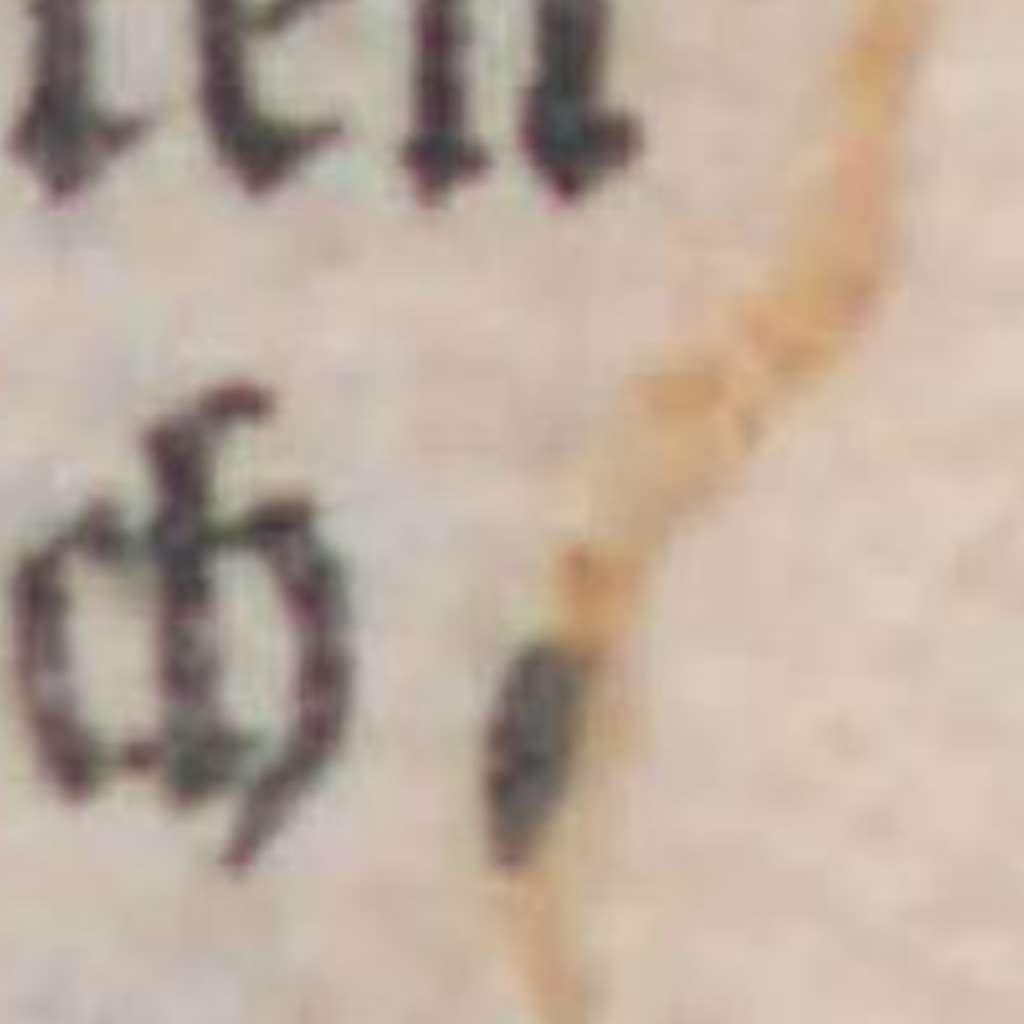 ten
ch